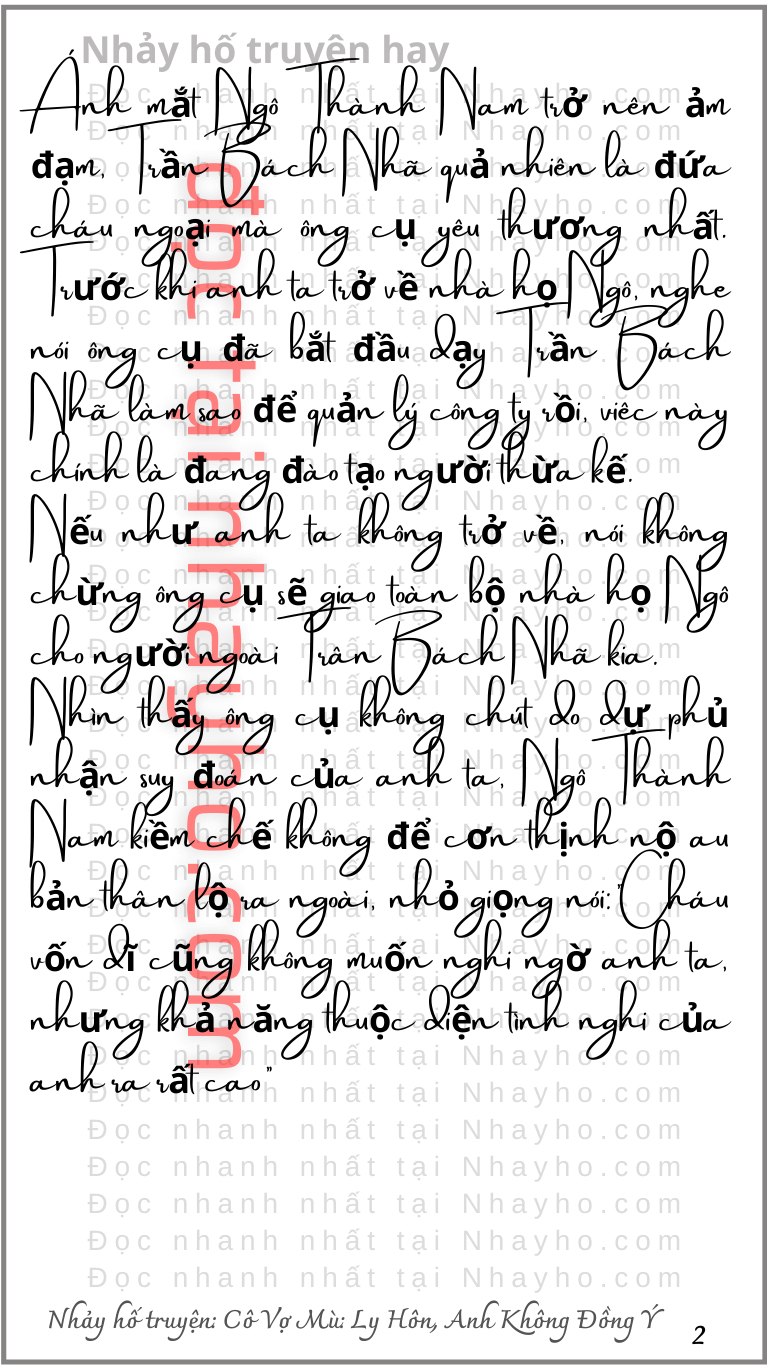 Nhảy hố truyện hay
Ánh mắt Ngô Thành Nam trở nên ảm
đạm, Trần Bách Nhã quả nhiên là đứa
cháu ngoại mà ông cụ yêu thương nhất.
Trước khi anh ta trở về nhà họ Ngô, nghe
nói ông cụ đã bắt đầu dạy Trần Bách
Nhã làm sao để quản lý công ty rồi, viêc này
chính là đang đào tạo người thừa kế.
Nếu như anh ta không trở về, nói không
chừng ông cụ sẽ giao toàn bộ nhà họ Ngô
cho người ngoài Trân Bách Nhã kia.
Nhìn thấy ông cụ không chút do dự phủ
nhận suy đoán của anh ta, Ngô Thành
Nam kiềm chế không để cơn thịnh nộ au
bản thân lộ ra ngoài, nhỏ giọng nói:"Cháu
vốn dĩ cũng không muốn nghi ngờ anh ta,
nhưng khả năng thuộc diện tình nghi của
anh ra rất cao"
đọc tại nhayho.com
Đọc nhanh nhất tại Nhayho.com
Đọc nhanh nhất tại Nhayho.com
Đọc nhanh nhất tại Nhayho.com
Đọc nhanh nhất tại Nhayho.com
Đọc nhanh nhất tại Nhayho.com
Đọc nhanh nhất tại Nhayho.com
Nhảy hố truyện: Cô Vợ Mù: Ly Hôn, Anh Không Đồng Ý
2